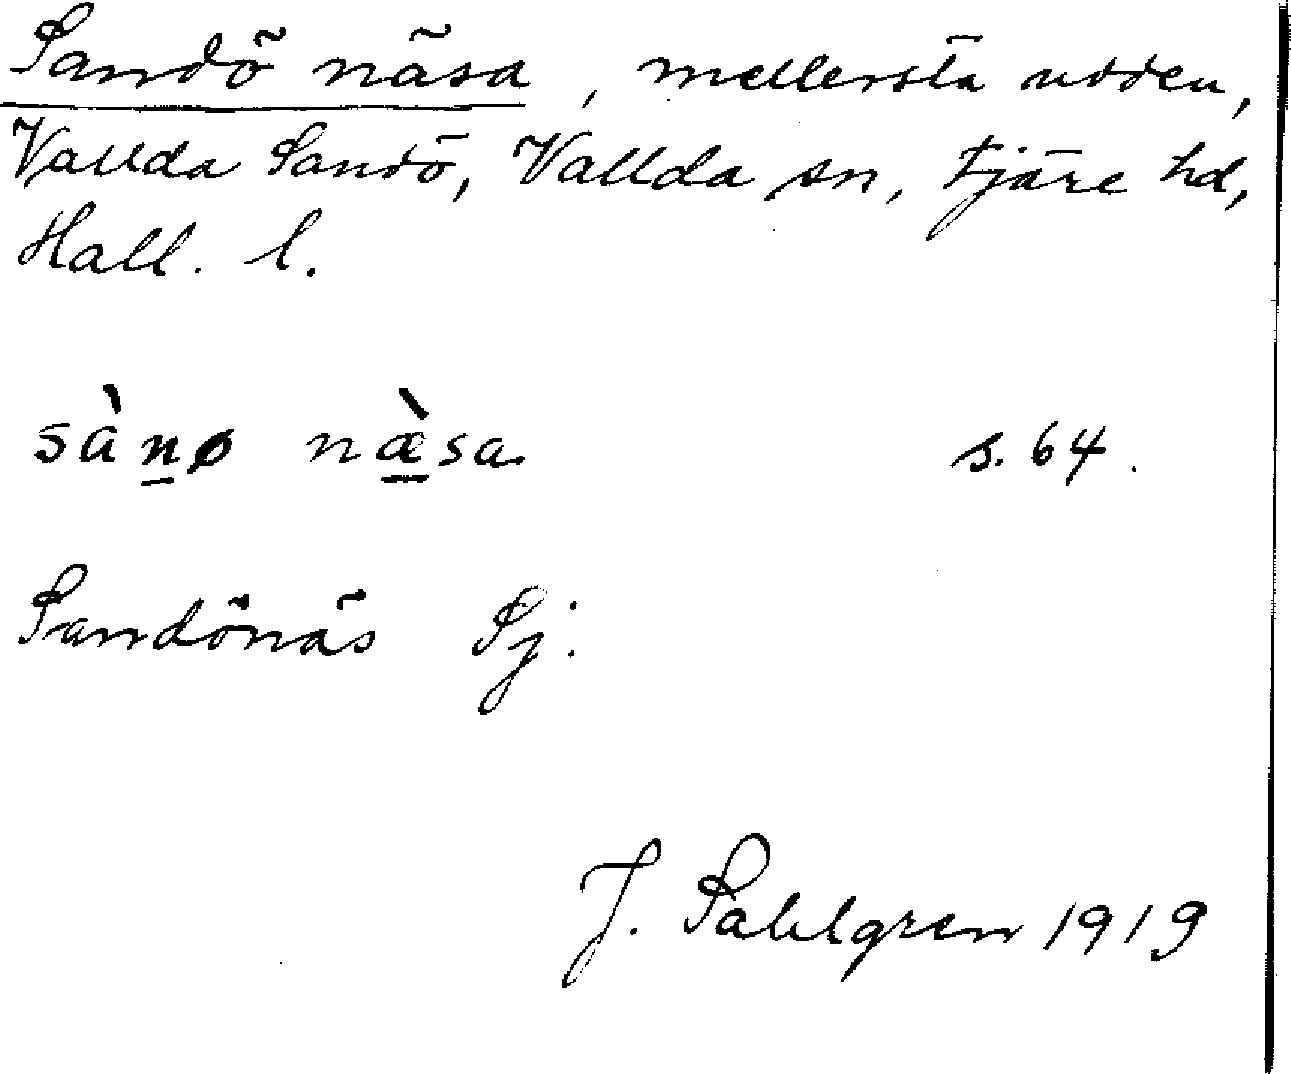 Sandö näsa, mellersta udden,
Vallda Sandö, Vallda sn, Fjäre hd,
Hall. l.
sàn̲ø næ̲̀sa s. 64.
Sandönäs Sj.
J. Sahlgren 1919